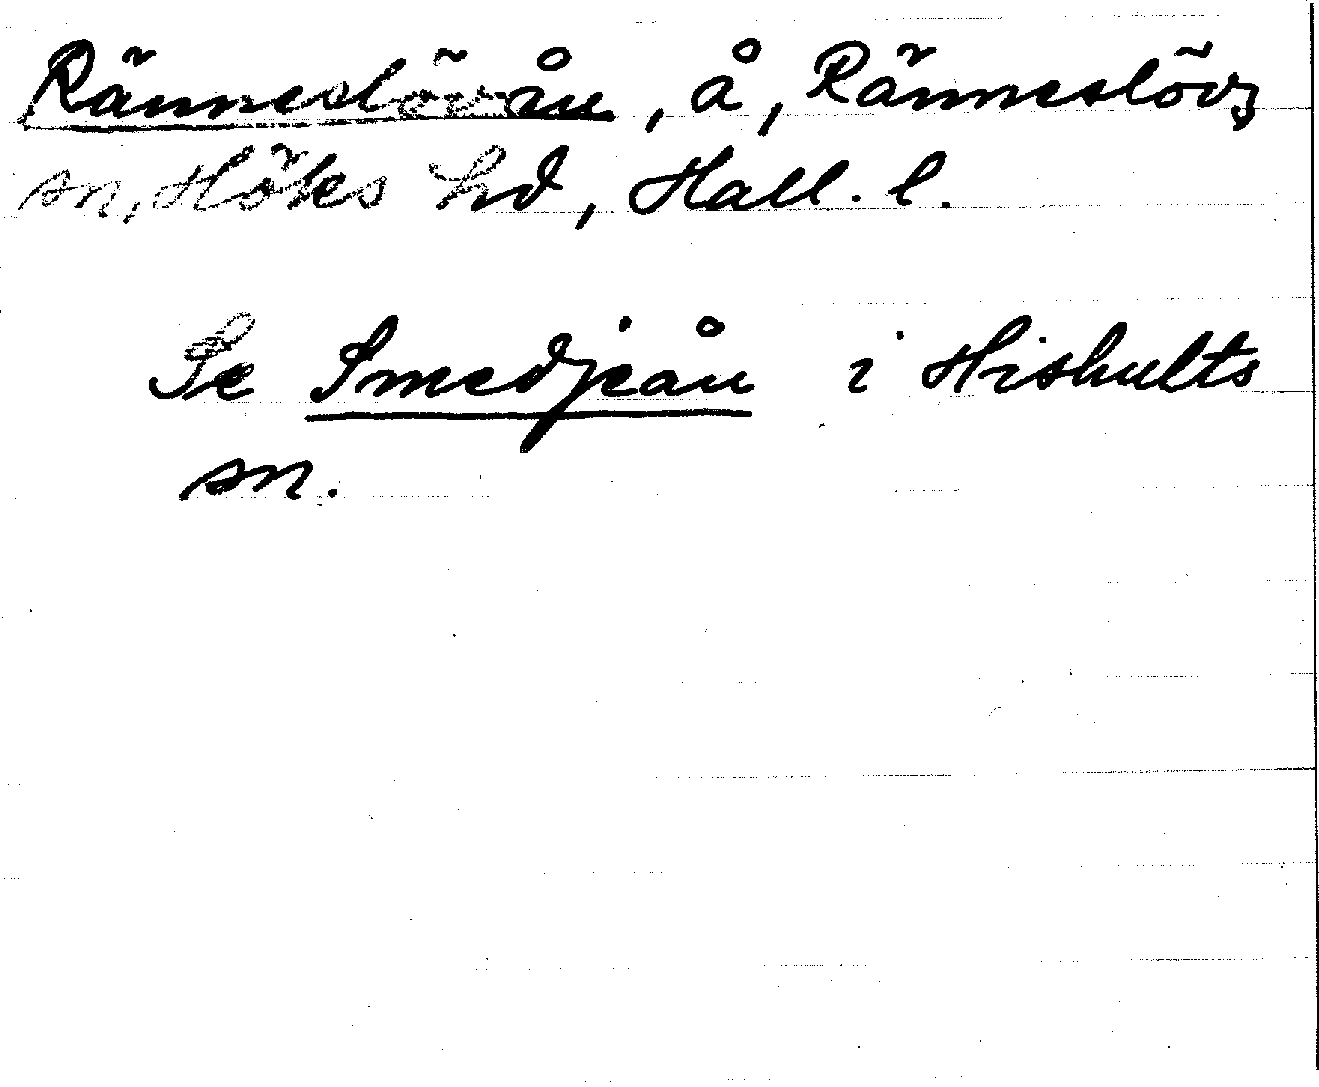 Ränneslövån, å, Ränneslövs
sn, Höks hd, Hall. l.
Se Smedjeån i Hishults
sn.